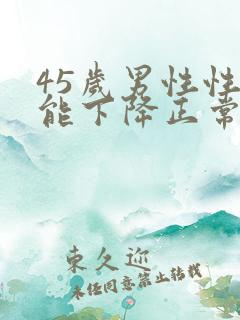 45岁男性性
能下降正常
東久迎
未经同意禁止转载